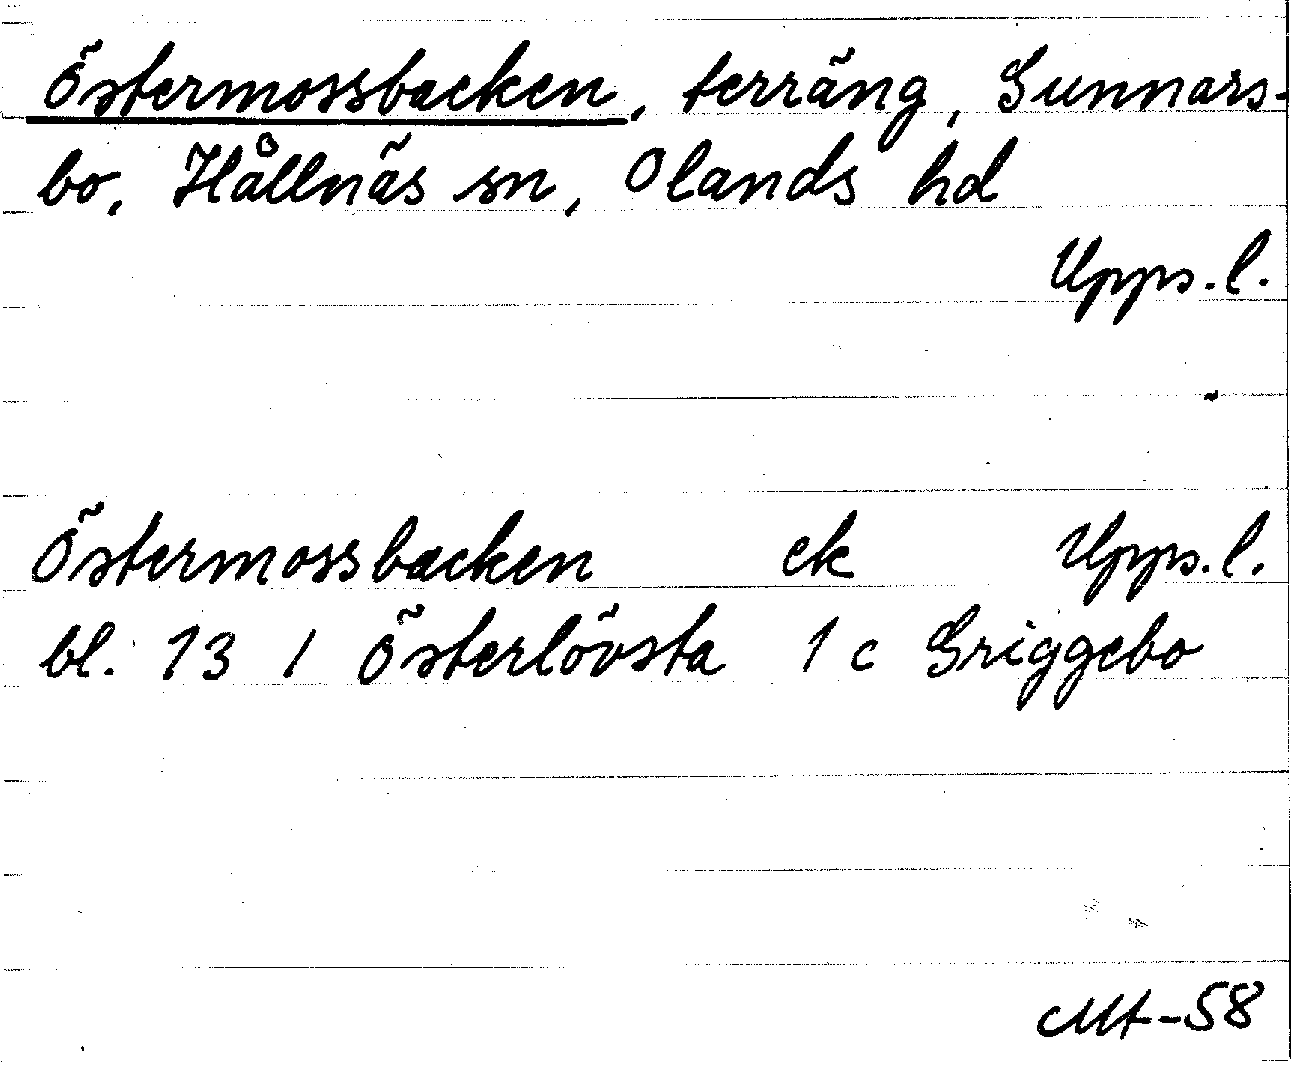 Östermossbacken, terräng, Gunnars-
bo, Hållnäs sn, Olands hd
Upps. l.
Östermossbacken ek Upps. l.
bl. 13 / Österlövsta 1 c Griggebo
Mt-58